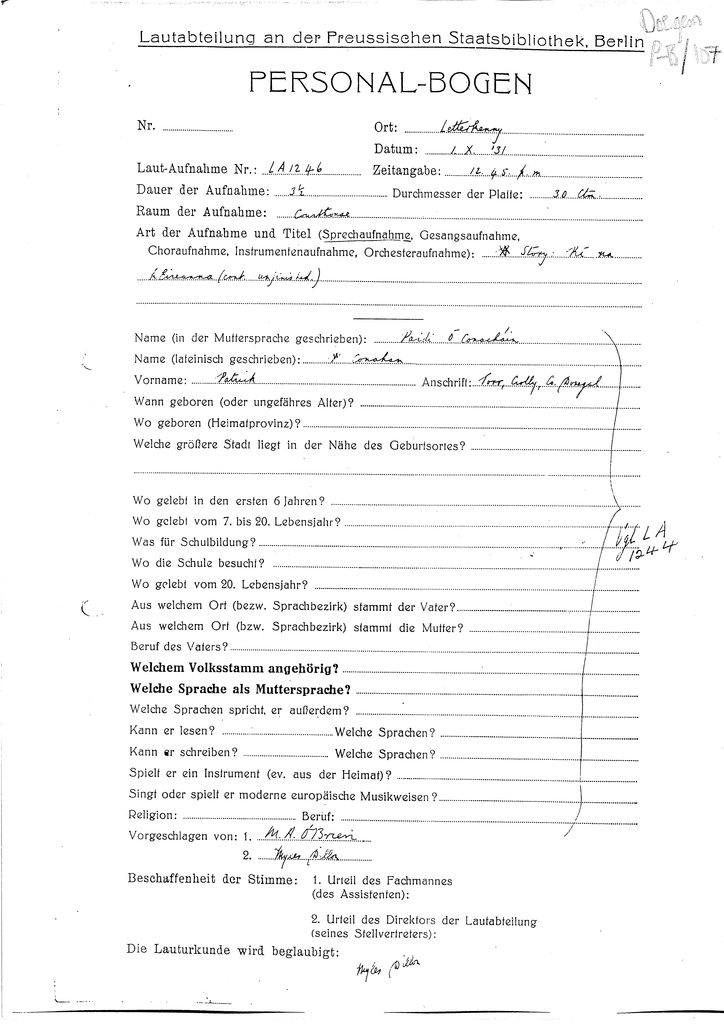 Doegen
Lautabteilung an der Preussischen Staatsbibliothek, Berlin
PERSONAL-BOGEN
Nr.
Ort: Letterkenny
Datum: 1. X. '31
Laut-Aufnahme Nr.: LA 1246
Zeitangabe: 12.45 p.m
Dauer der Aufnahme: 3½
Durchmesser der Platte: 30 Ctm.
Raum der Aufnahme: Courthouse
Art der Aufnahme und Titel (Sprechaufnahme, Gesangsaufnahme,
Choraufnahme, Instrumentenaufnahme, Orchesteraufnahme): Story: Rí na
hÉireanna (cont. unfinished.)
Name (in der Muttersprache geschrieben): Paidí Ó Conacháin
Name (lateinisch geschrieben): Conahan
Vorname: Patrick
Anschrift: Torr, Crolly, Co. Donegal
Wann geboren (oder ungefähres Alter)?
Wo geboren (Heimatprovinz)?
Welche größere Stadt liegt in der Nähe des Geburtsortes?
Wo gelebt in den ersten 6 Jahren?
Wo gelebt vom 7. bis 20. Lebensjahr?
Was für Schulbildung?
vgl LA
1244
Wo die Schule besucht?
Wo gelebt vom 20. Lebensjahr?
Aus welchem Ort (bezw. Sprachbezirk) stammt der Vater?
Aus welchem Ort (bzw. Sprachbezirk) stammt die Mutter?
Beruf des Vaters?
Welchem Volksstamm angehörig?
Welche Sprache als Muttersprache?
Welche Sprachen spricht er außerdem?
Kann er lesen? Welche Sprachen?
Kann er schreiben? Welche Sprachen?
Spielt er ein Instrument (ev. aus der Heimat)?
Singt oder spielt er moderne europäische Musikweisen?
Religion: Beruf:
Vorgeschlagen von: 1. M. A. O'Brien
2. Myles Dillon
Beschaffenheit der Stimme: 1. Urteil des Fachmannes
(des Assistenten):
2. Urteil des Direktors der Lautabteilung
(seines Stellvertreters):
Die Lauturkunde wird beglaubigt:
Myles Dillon